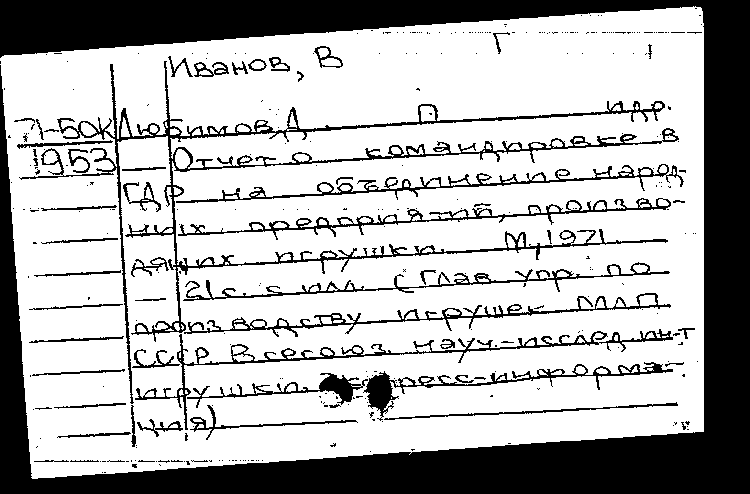 Иванов, В Г
71-50К Любимов, Д. П и др.
1953 Отчет о командировке в
ГДР на объединение народ-
ных предприятий, произво-
дящих игрушки. М, 1971.
21 с. с илл. (Глав упр. по
производству игрушек МЛП
СССР. Всесоюз. науч.-исслед. ин-т
игрушки. Экспресс-информа-
ция).